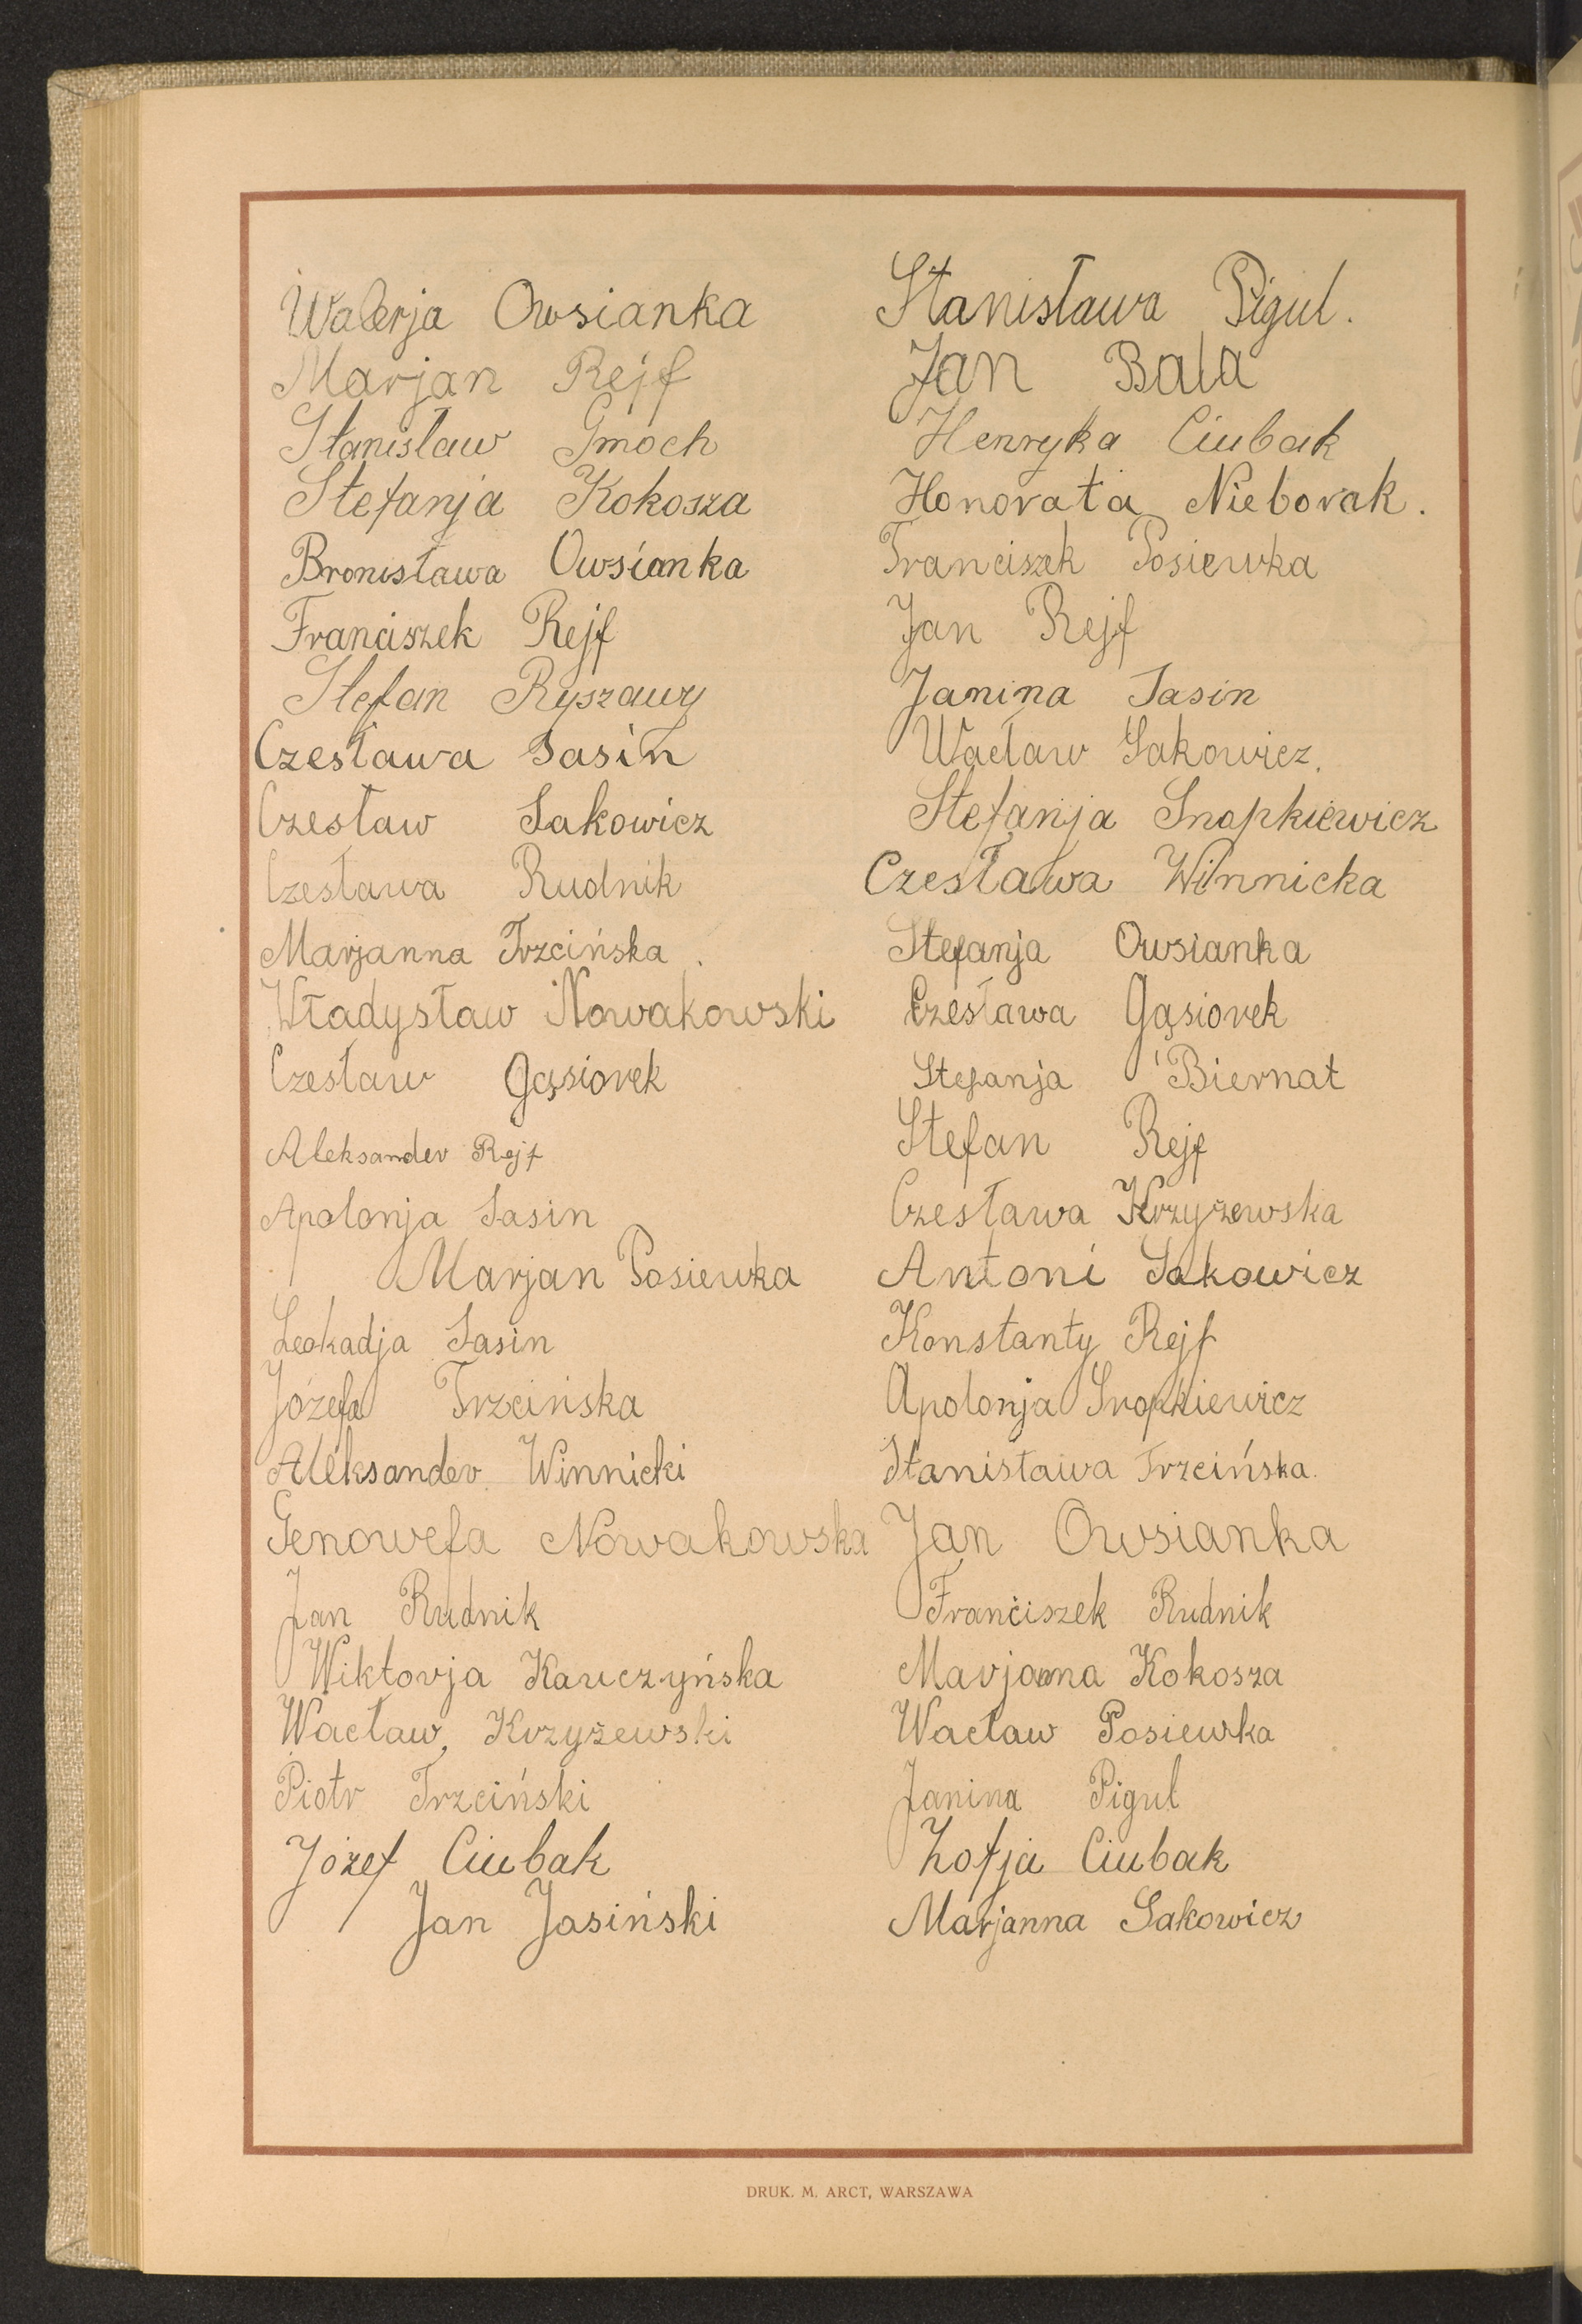 Walerja Owsianka
Marjan Rejf
Stanisław Gmoch
Stefanja Kokosza
Bronisława Owsianka
Franciszek Rejf
Stefan Ryszawy
Czesława Sasin
Czesław Sakowicz
Czesława Rudnik
Marjanna Trzcińska.
Władysław Nowakowski
Czesław Gąsiorek
Aleksander Rejf
Apolonja Sasin
Marjan Posiewka
Leokadja Sasin
Józefa Trzcińska
Aleksander Winnicki
Genowefa Nowakowska
Jan Rudnik
Wiktorja Karczyńska
Wacław Krzyżewski
Piotr Trzciński
Józef Ciubak
Jan Jasiński
Stanisława Pigul.
Jan Bala
Henryka Ciubak
Honorata Nieborak.
Franciszek Posiewka
Jan Rejf
Janina Sasin
Wacław Sakowicz.
Stefanja Snopkiewicz
Czesława Winnicka
Stefanja Owsianka
Czesława Gąsiorek
Stefanja Biernat
Stefan Rejf
Czesława Krzyżewska
Antoni Sakowicz
Konstanty Rejf
Apolonja Snopkiewicz
Stanisława Trzcińska.
Jan Owsianka
Franciszek Rudnik
Marjanna Kokosza
Wacław Posiewka
Janina Pigul
Zofja Ciubak
Marjanna Sakowicz
DRUK. M. ARCT, WARSZAWA